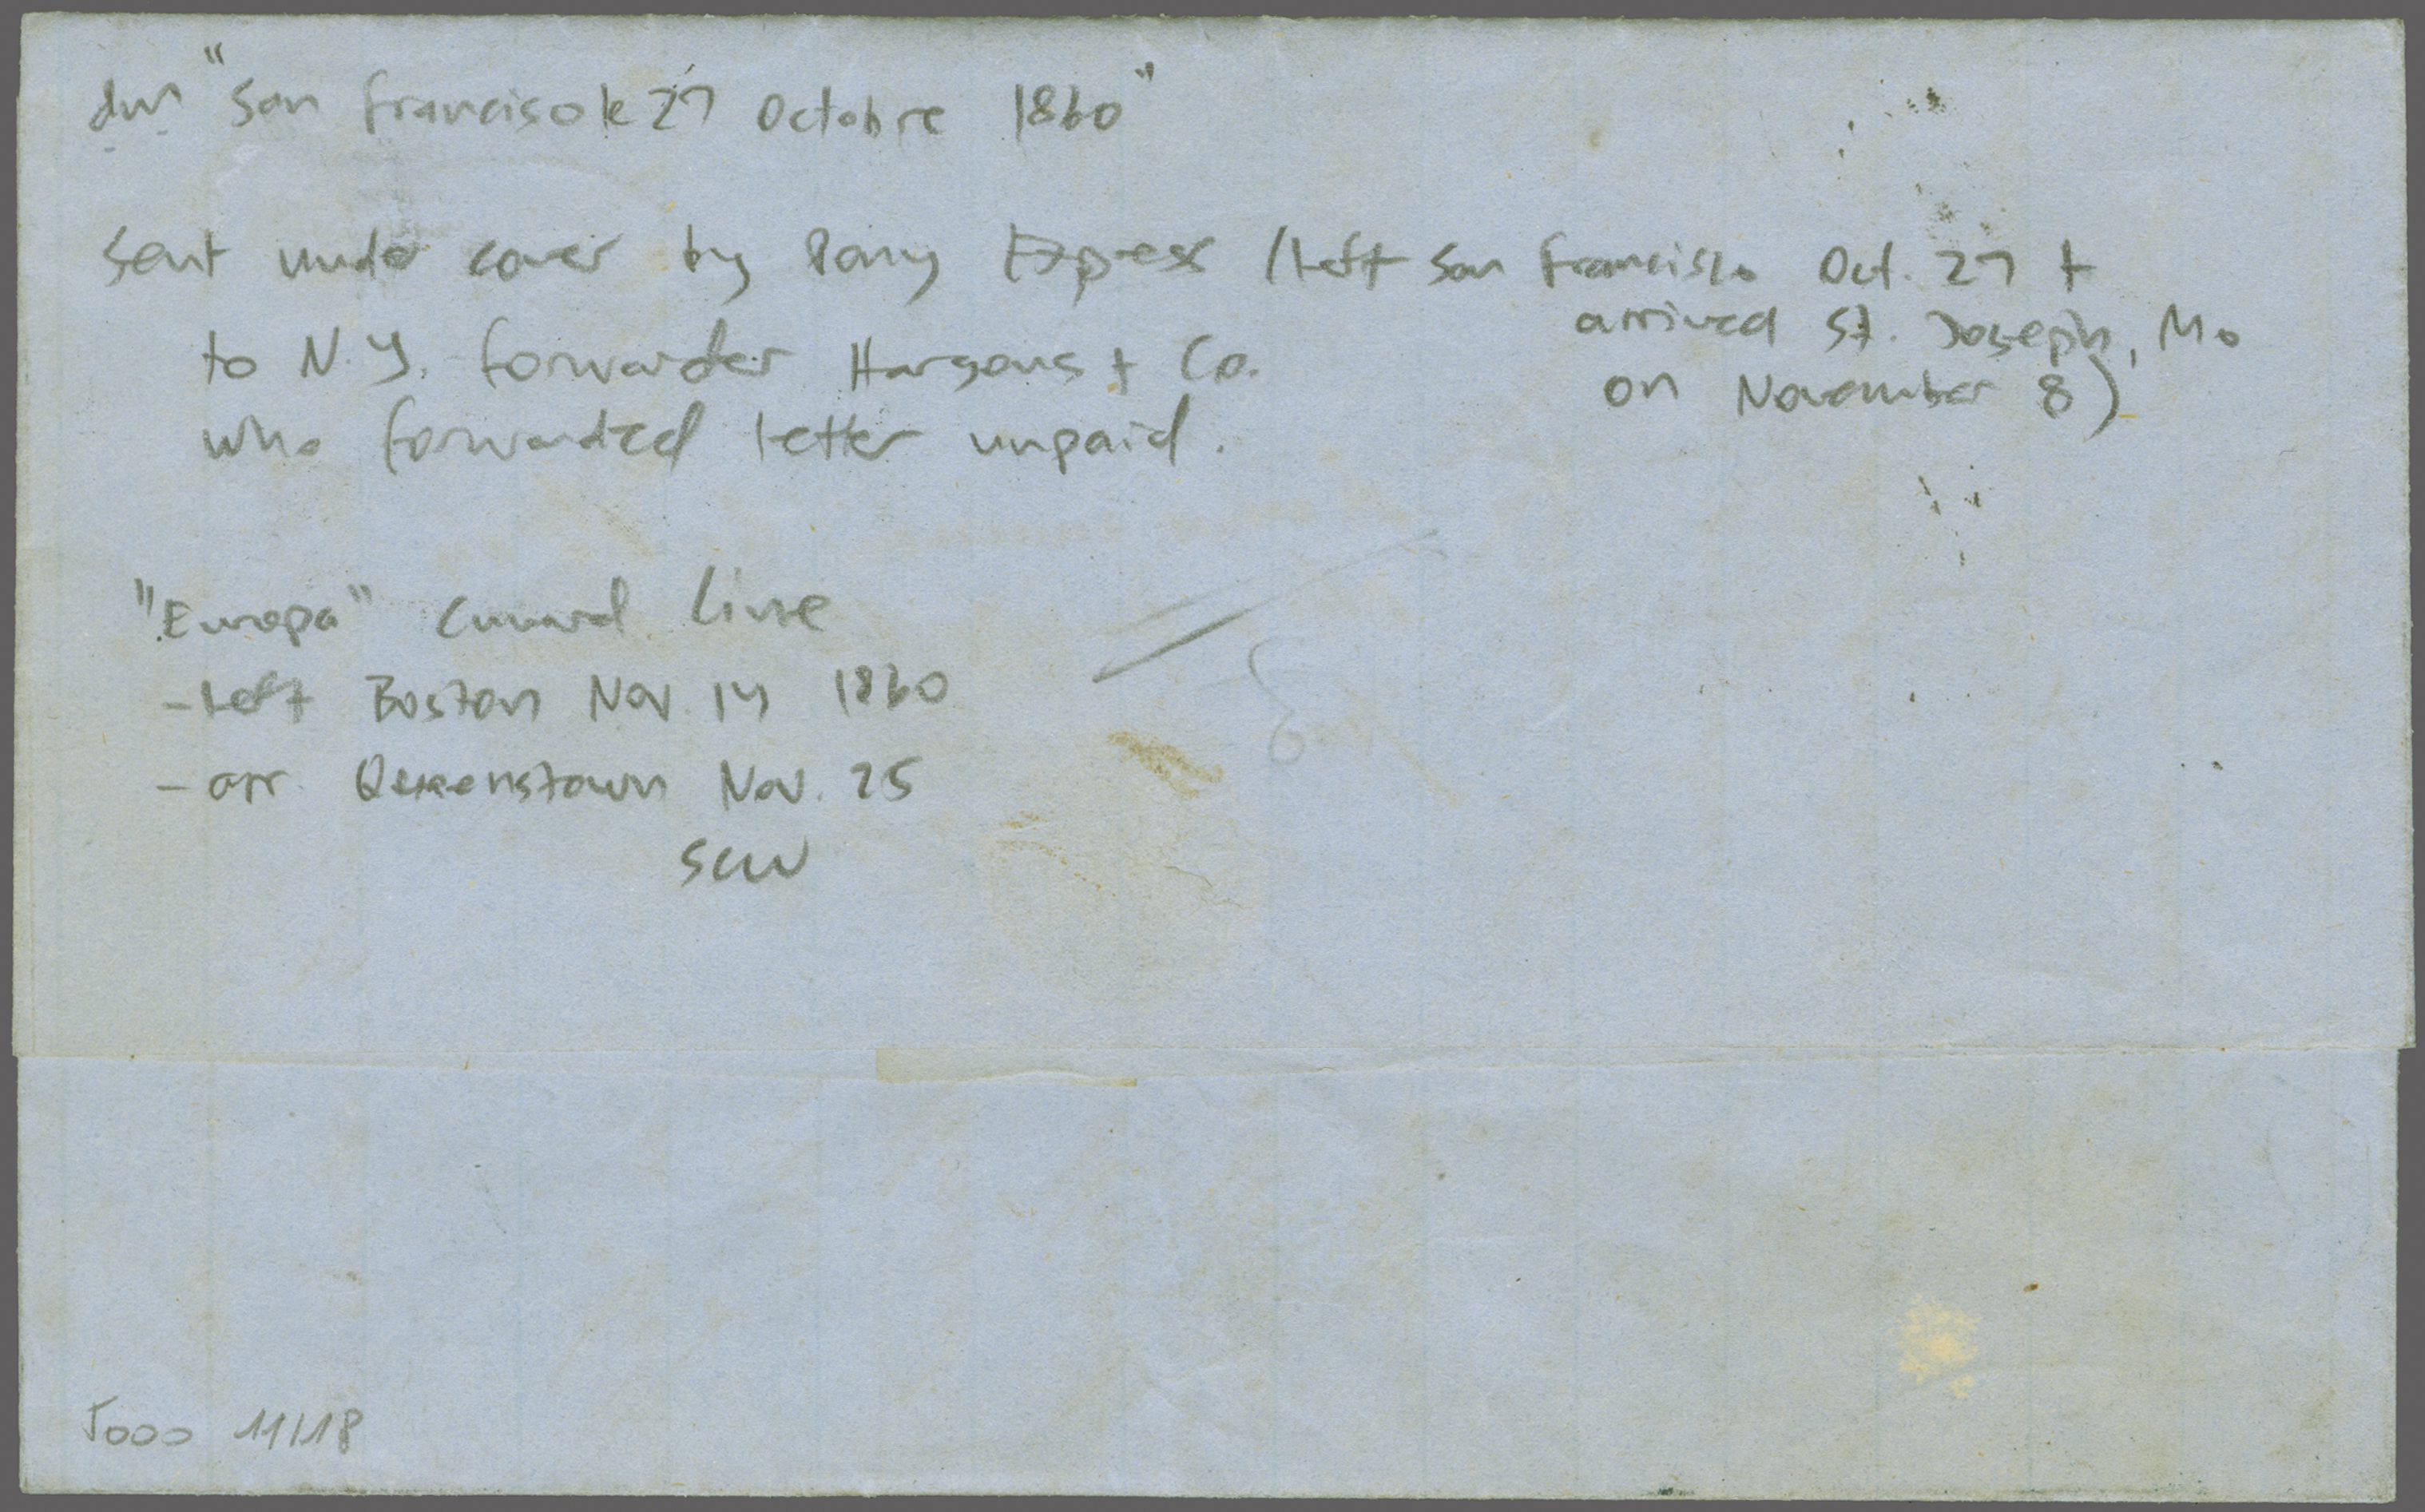 dm "San Francisco le 27 Octobre 1860"
Sent under cover by Pony Express (left San Francisco Oct. 27 +
arrived St. Joseph, Mo
on November 8)
to N.Y. forwarder Hargous + Co.
who forwarded letter unpaid.
"Europa" Cunard Line
- left Boston Nov. 14 1860
- arr. Queenstown Nov. 25
SCW
5000 11/18